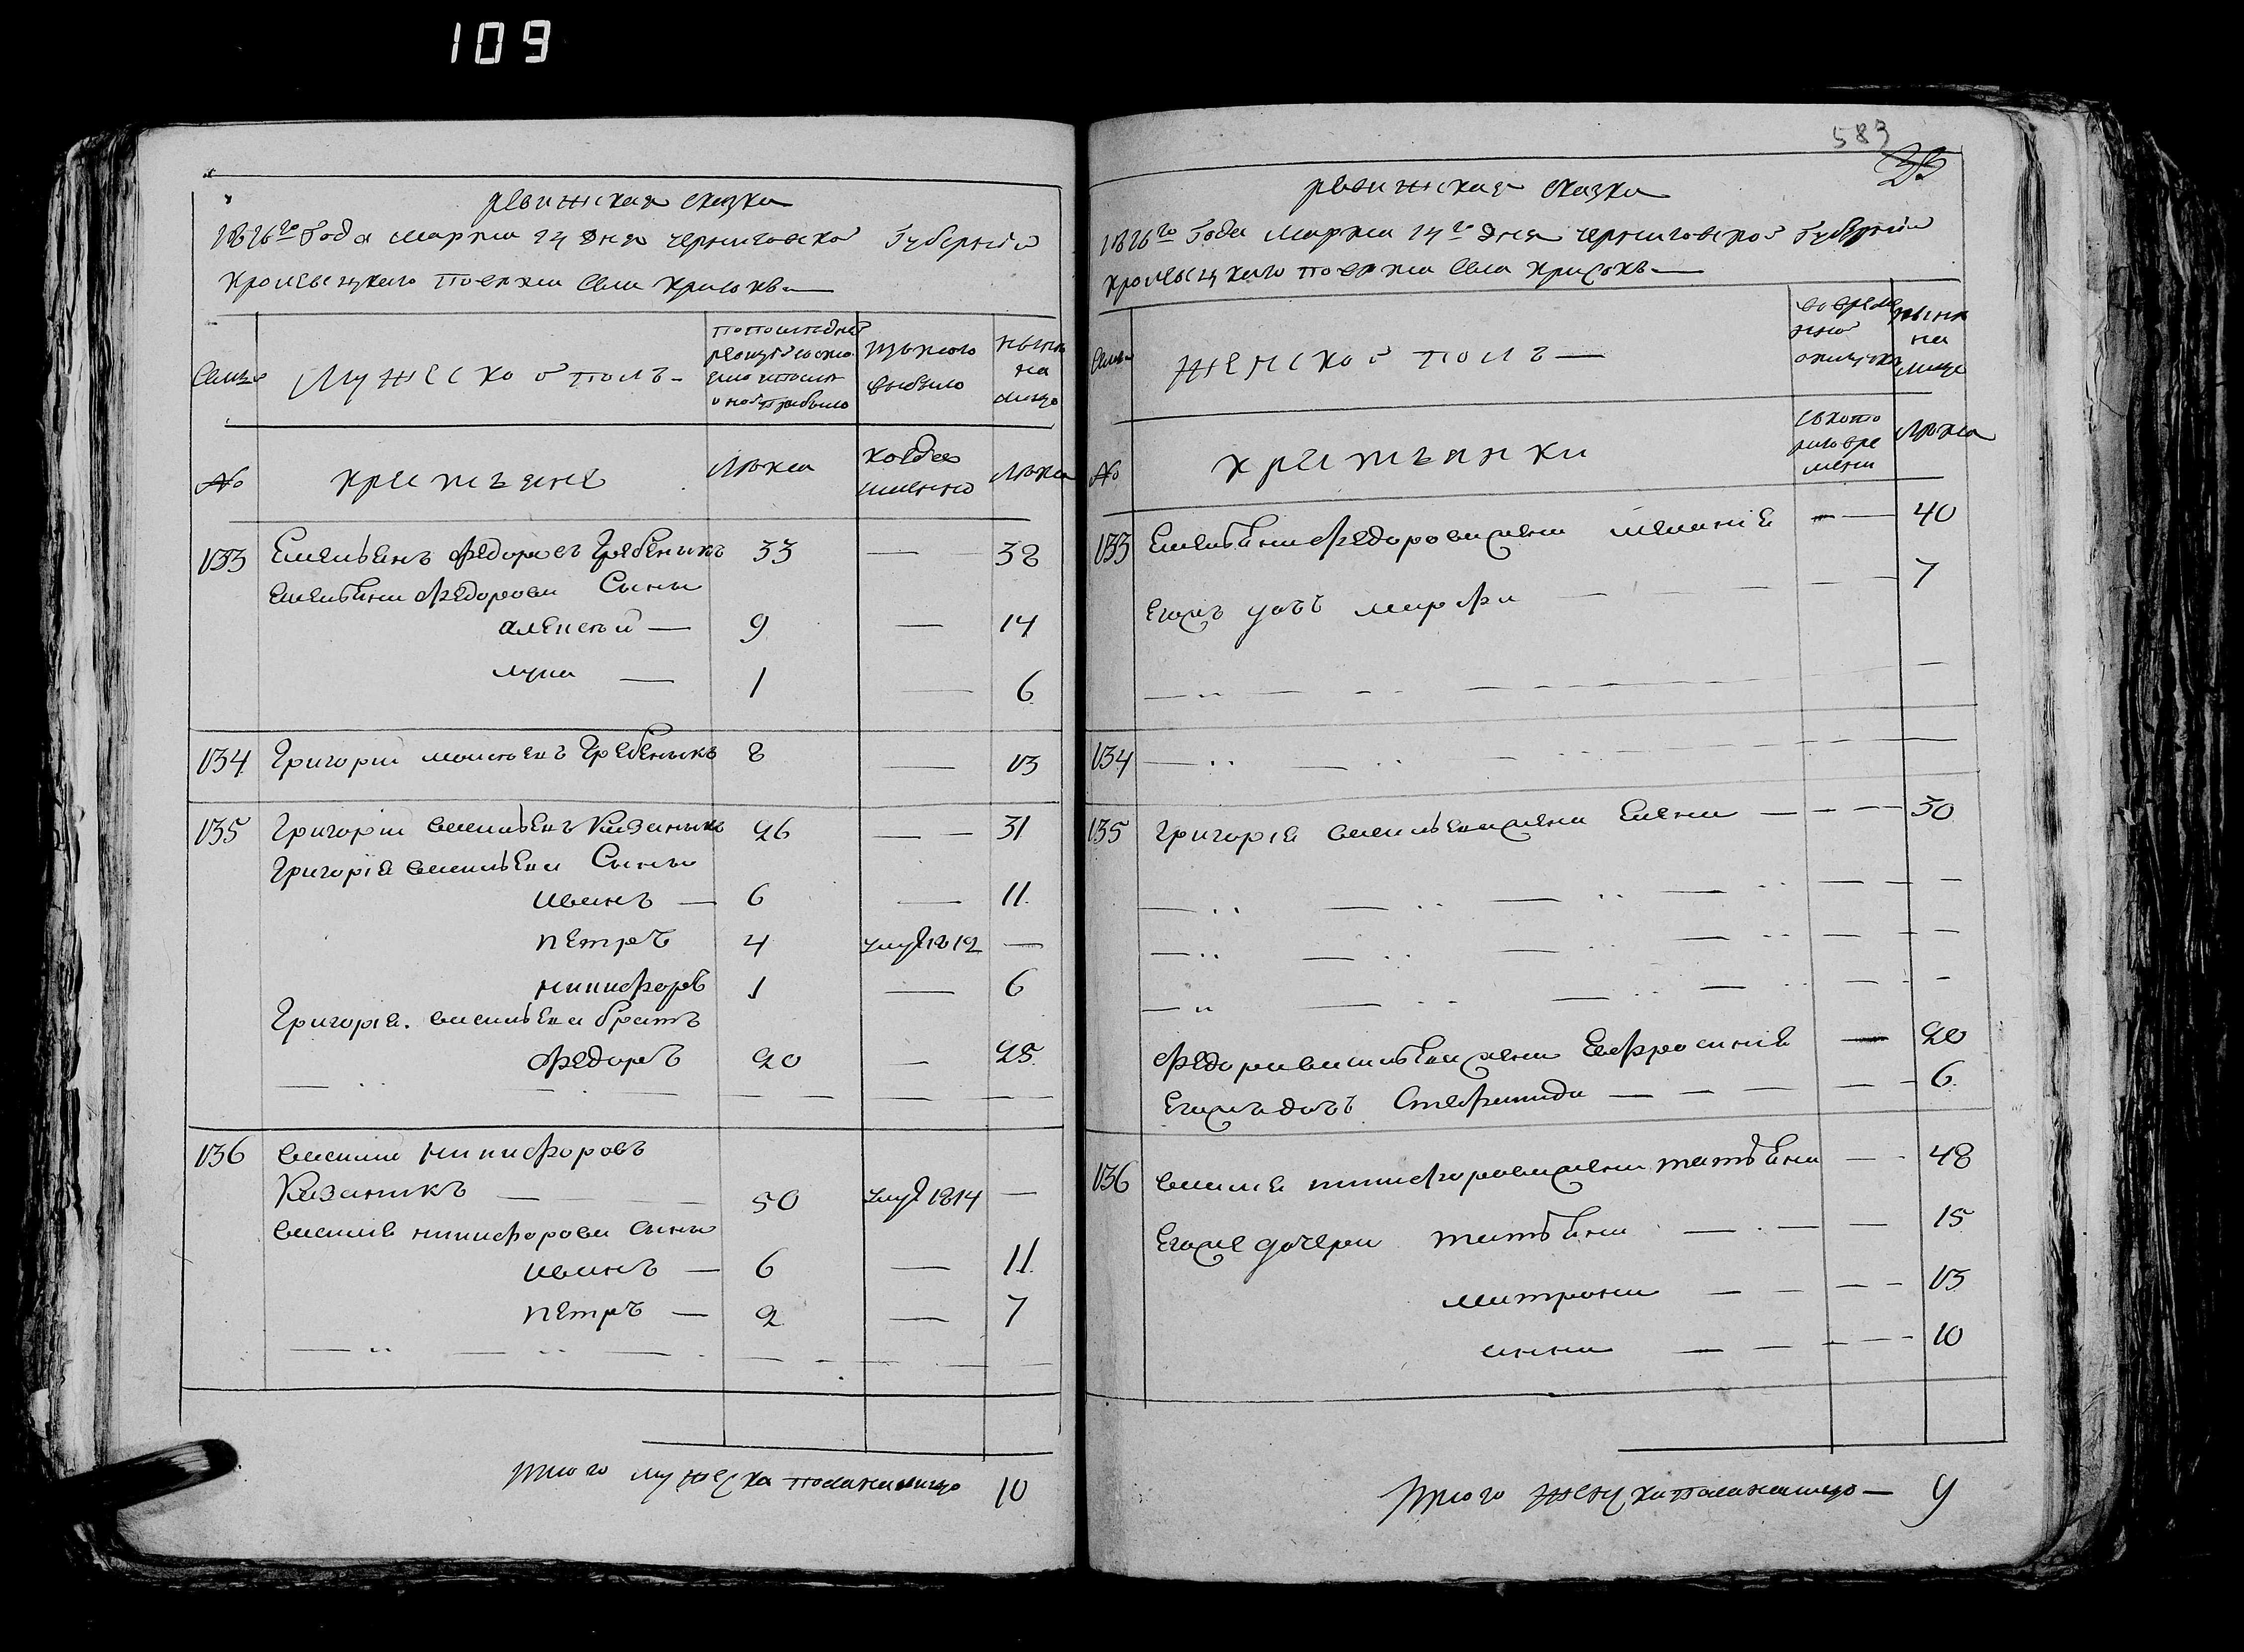 109
ревижская сказка
1816го Года марта 24 дня черниговской Губернии
кролевецкого повета села
Семьи
Мужеской полъ
по последней ревизии состояло и после оной прибыло
изъ того выбыло
ныне на лицо
№
крестьяне
Лѣта
когда именно
Лѣта
133 Емельянъ Федоровъ Гребеникъ 33 — 38
Емельяна Федорова Сыны
алексей — 9 — 14
лука — 1 — 6
134 Григорий моисѣевъ Гребеникъ 8 — 13
135 Григорий васильевъ Казаникъ 26 — — 31
Григорiя васильева Сыны
иванъ — 6 — 11
петръ 4 умр 1812 —
никифоръ 1 — 6
Григорiя васильева братъ
Федоръ 20 — 25
136 василий никифоровъ
Казаникъ — 50 умр 1814 —
василия никифорова сыны
иванъ — 6 — 11
петръ — 2 — 7
Итого мужеска пола налицо 10
583
35
ревижская сказка
1816го Года марта 24го дня черниговской Губернии
кролевецкого повета села
Семьи
Женской полъ —
во временной отлучке
ныне на лицо
№
крестьянки
съ которого времени
Лѣта
133 Емельяна Федорова жена меланiя — — 40
Его дочь марфа — — — — — 7
134
135 Григорiя васильева жена Елена — — — 30
Федора васильева жена Ефросинiя — 20
Его дочь Степанида — — — — — 6
136 василия никифорова жена татьяна — - 48
Егоже дочери татьяна — — — 15
матрона — — — — 13
анна — — — — 10
Итого женска пола налицо — 9